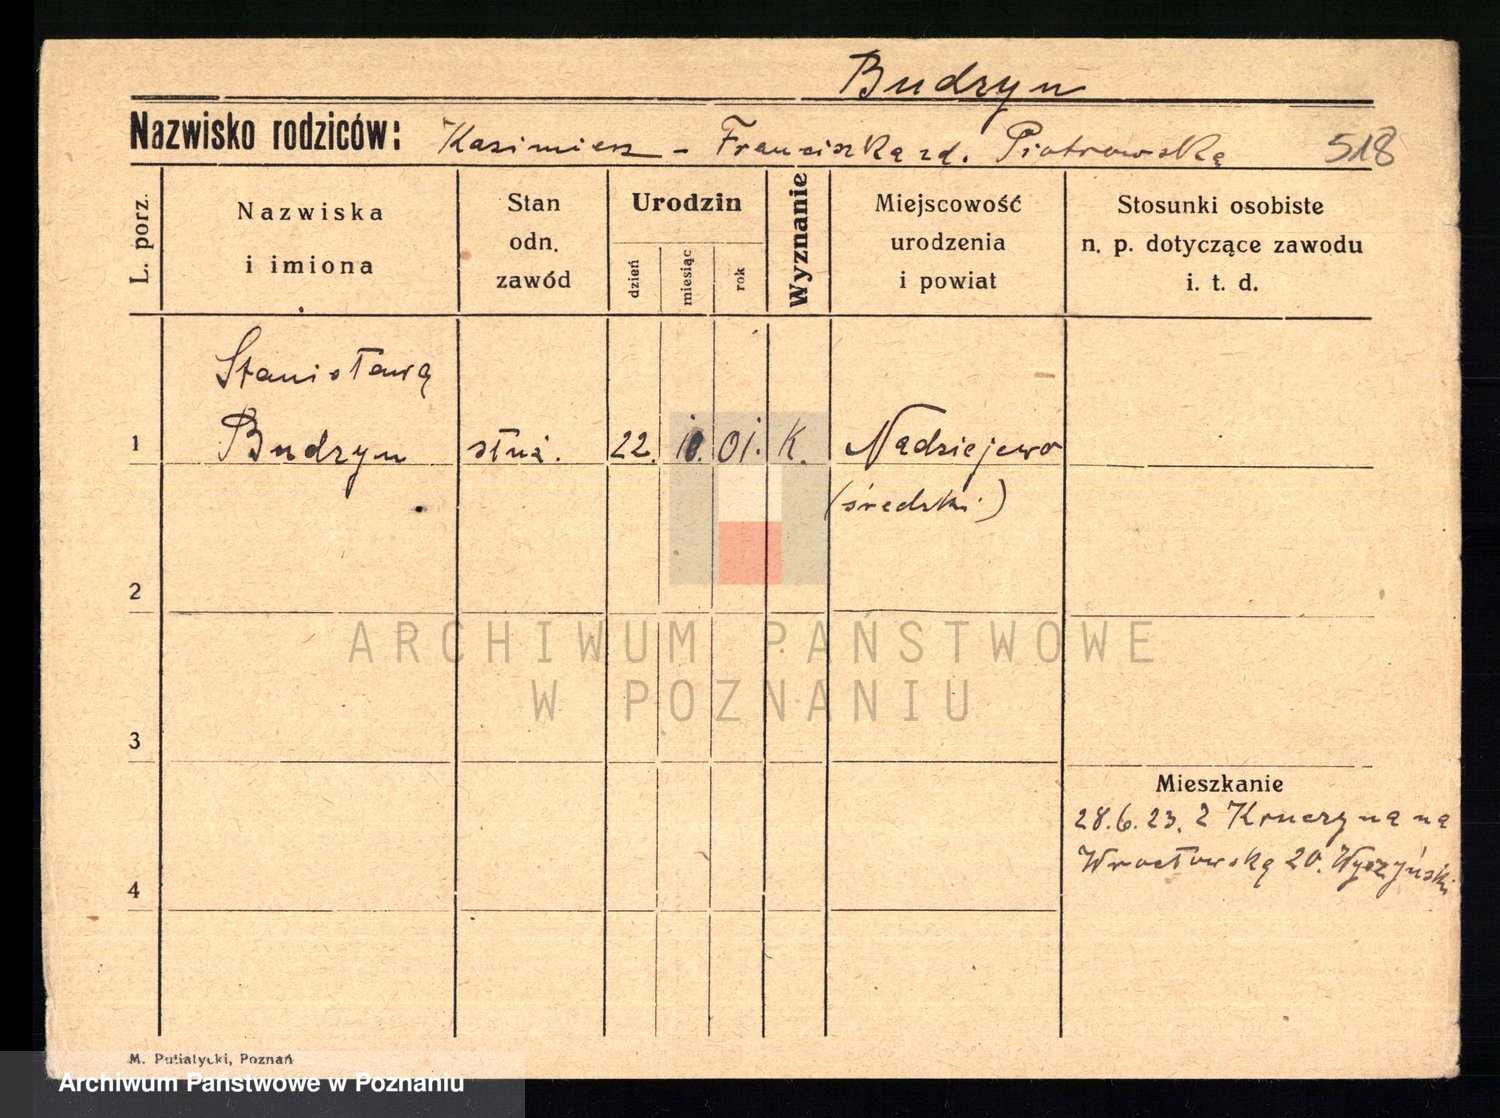 Budzyn
Nazwisko rodziców: Kazimierz - Franciszka zd. Piotrowska 518
L. porz.
Nazwiska
i imiona
Stan
odn.
zawód
Urodzin
dzień
miesiąc
rok
Wyznanie
Miejscowość
urodzenia
i powiat
Stosunki osobiste
n. p. dotyczące zawodu
i. t. d.
Stanisława
1 Budzyn służ. 22. 10. 01. K. Nadziejewo
(średzki)
2
ARCHIWUM PAŃSTWOWE
W POZNANIU
3
Mieszkanie
28.6.23. z Kruczyna na
4 Wrocławską 20. Wyszyński
M. Putiatycki, Poznań
Archiwum Państwowe w Poznaniu